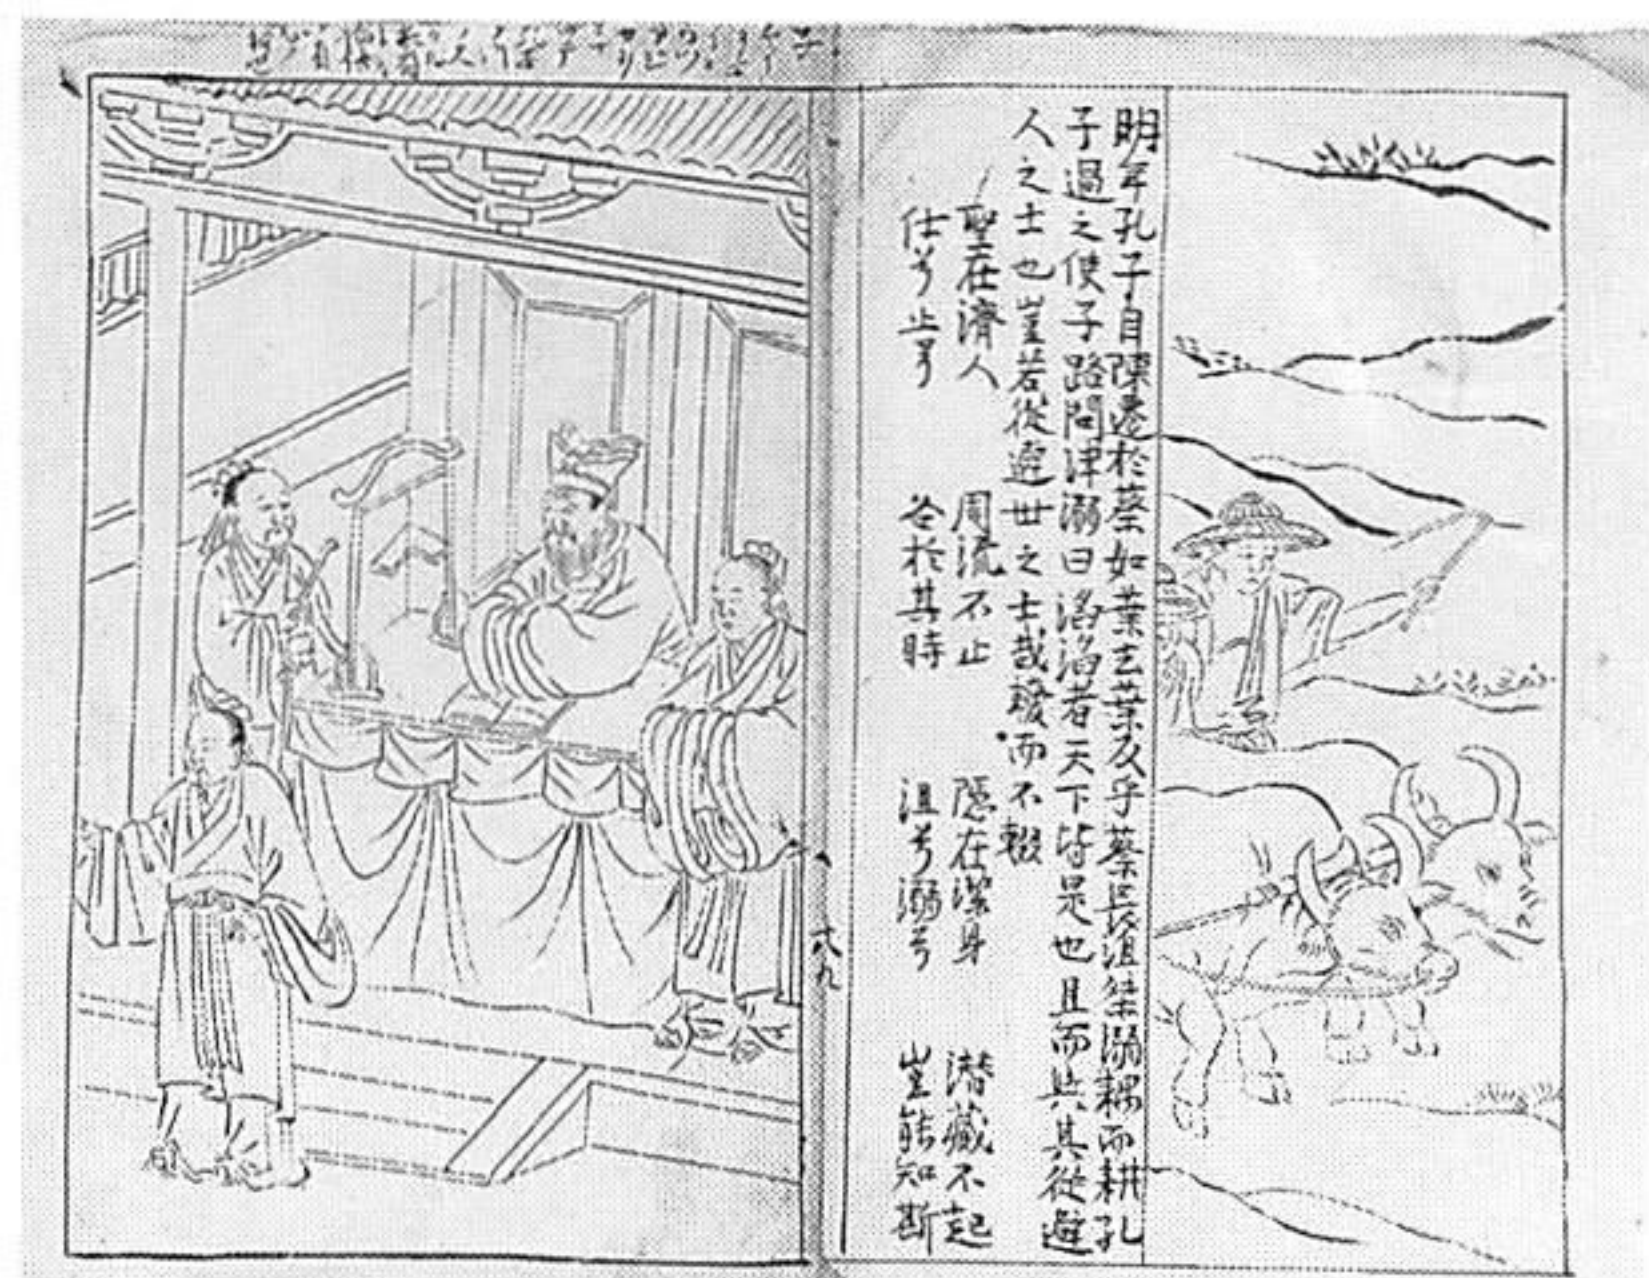 明年孔子自陳遷於蔡如葉去葉反乎蔡長沮桀溺耦而耕孔
子過之使子路問津溺曰滔滔者天下皆是也且而與其從避
人之士也豈若從避世之士哉耰而不輟
聖在濟人 周流不止 隱在潔身 潜藏不起
仕兮止兮 各於其時 沮兮溺兮 豈能知斯